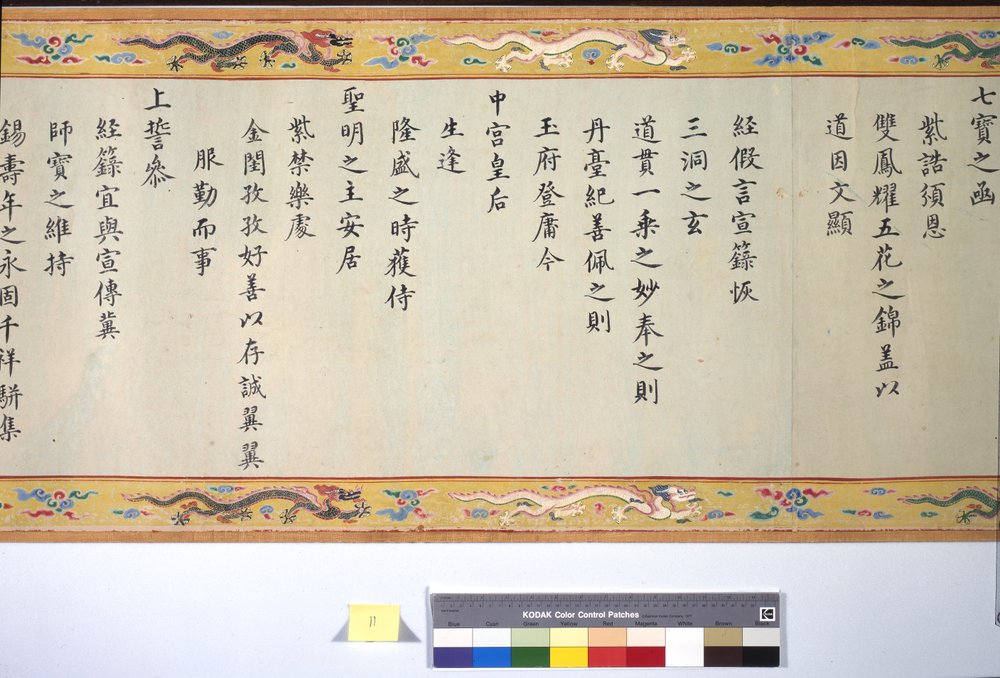 七寶之函
紫誥須恩
雙鳳耀五花之錦蓋以
道因文顯
經假言宣籙恢
三洞之玄
道貫一乘之妙奉之則
丹臺紀善佩之則
玉府登庸今
中宮皇后
生逢
隆盛之時獲侍
聖明之主安居
紫禁樂處
金閨孜孜好善以存誠翼翼
服勤而事
上誓參
經籙宜與宣傳冀
師寶之維持
錫壽年之永固千祥駢集
11
KODAK Color Control Patches
Blue Cyan Green Yellow Red Magenta White Brown Black
Kodak